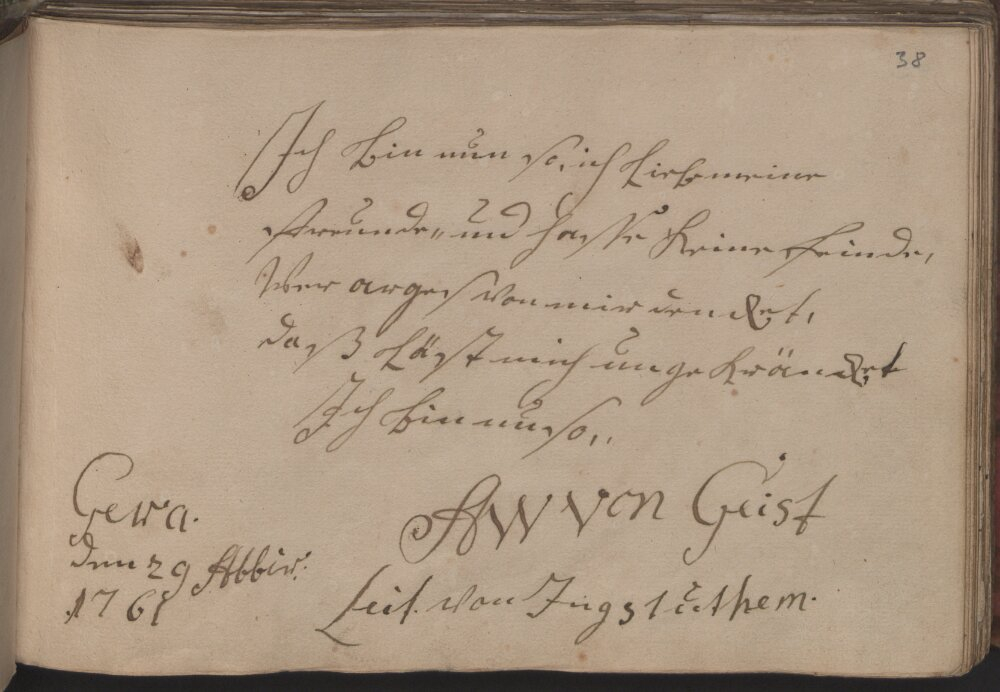 38
Ich bin nun so, ich Lieb meine
freunde, und hasse Keine feinde,
Wer arges von mir dencket,
daß Läst mich unge Kräncket
Ich bin nun so,,
Gera.
den 29
1761
AW von Geist
Leit. von